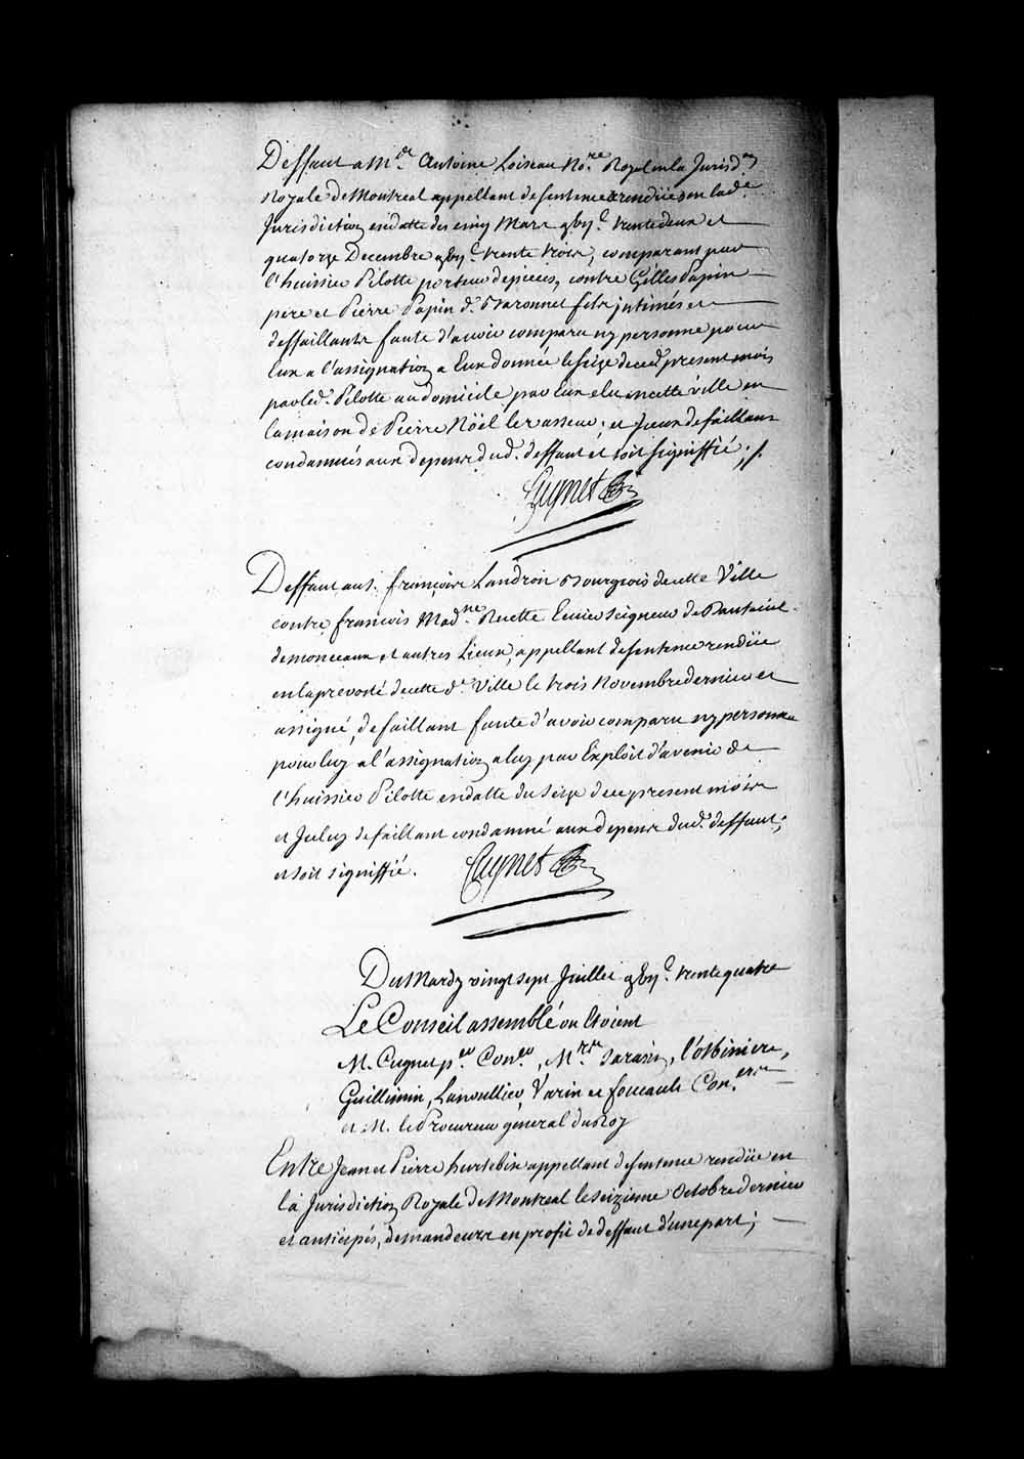 Deffaut a M.re Antoine Loiseau No.re Royal en la Jurisd.on
Royale de Montreal appellant de sentences rendües en lad.e
Jurisdiction en datte des cinq Mars gbijc. trente deux et
quatorze Decembre gbijc. trente trois, comparant par
l'huissier Pilotte porteur de pieces, contre Gilles Papin
pere et Pierre Papin d. Baronnet fils jntimés et
deffaillants faute d'avoir comparu ny personne pour
Eux a l'assignation a Eux donnée le seize de ce present mois
par led. Pilotte au domicile par Eux elu en cette ville en
la maison de Pierre Nöël le vasseur; et jceux defaillans
condamnés aux depens dud. deffaut et soit signiffié ;/.
Cugnet
Deffaut au s. françois Landron Bourgeois de cette Ville
contre françois Mad.ne Ruette Ecuier Seigneur de
de monceaux et autres Lieux, appellant de sentence rendüe
en la prevosté de cette d.e Ville le trois Novembre dernier et
assigné, defaillant faute d'avoir comparu ny personne
pour luy a l'assignation a luy par Exploit d'avenir de
l'huissier Pilotte en datte du seize de ce present mois
et Jceluy defaillant condamné aux depens dud. deffaut;
et soit signiffié.
Cugnet
Du Mardy vingt sept Juillet gbijc. trente quatre
Le Conseil assemblé ou Etoient
M. Cugnet p.er Con.er, M.rs Sarasin, l'otbiniere,
Guillimin, Lanoullier, Varin et foucault Con.ers
et M. le Procureur général du Roy
Entre Jean et Pierre hurtebise appellant de sentence rendüe en
la Jurisdiction Royale de Montreal le seizieme Octobre dernier
et anticipés, demandeurs en profit de deffaut d'une part;